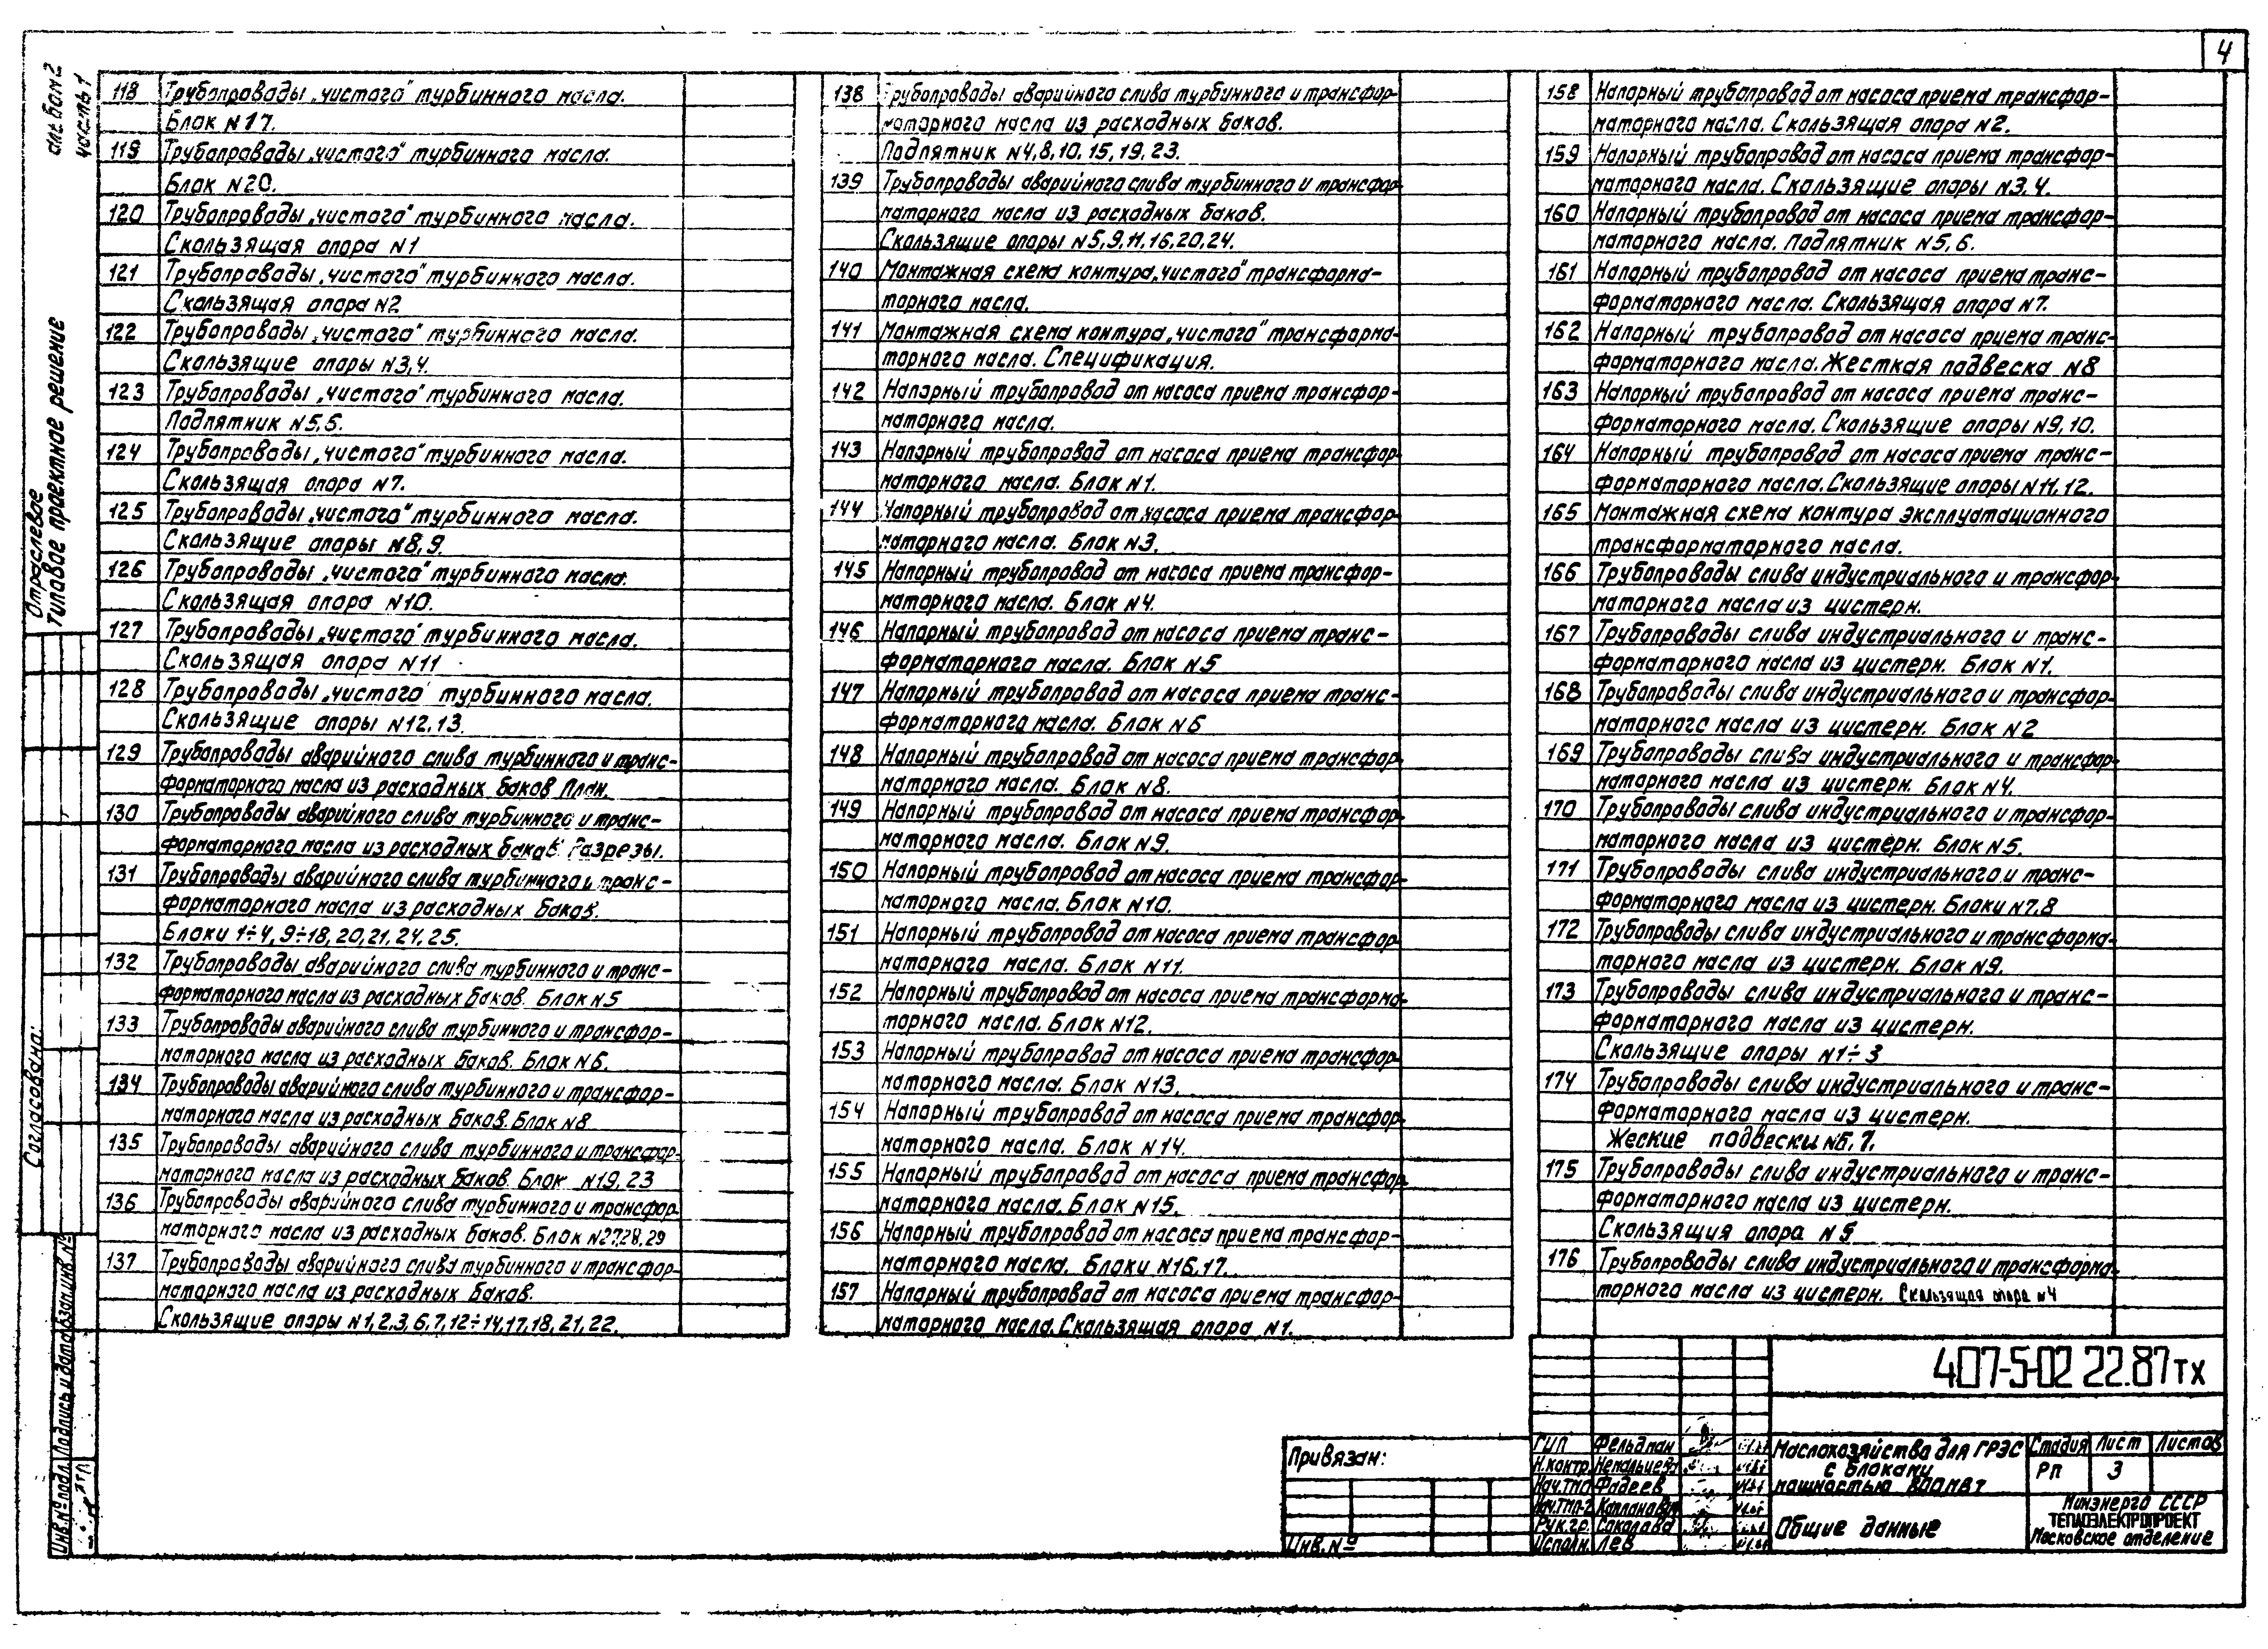 4
альбом 2
часть 1
Отраслевое
типовое проектное решение
Согласовано:
Инв.№ подл. Подпись и дата Взам.инв.№
118 Трубопроводы „чистого" турбинного масла.
Блок N17.
119 Трубопроводы „чистого" турбинного масла.
Блок N20.
120 Трубопроводы „чистого" турбинного масла.
Скользящая опора N1
121 Трубопроводы „чистого" турбинного масла.
Скользящая опора N2
122 Трубопроводы „чистого" турбинного масла.
Скользящие опоры N3,4.
123 Трубопроводы „чистого" турбинного масла.
Подпятник N5,6.
124 Трубопроводы „чистого" турбинного масла.
Скользящая опора N7.
125 Трубопроводы „чистого" турбинного масла.
Скользящие опоры N8,9.
126 Трубопроводы „чистого" турбинного масла.
Скользящая опора N10.
127 Трубопроводы „чистого" турбинного масла.
Скользящая опора N11
128 Трубопроводы „чистого" турбинного масла.
Скользящие опоры N12,13.
129 Трубопроводы аварийного слива турбинного и транс-
форматорного масла из расходных баков План.
130 Трубопроводы аварийного слива турбинного и транс-
форматорного масла из расходных баков. Разрезы.
131 Трубопроводы аварийного слива турбинного и транс-
форматорного масла из расходных баков.
Блоки 1÷4, 9÷18, 20,21,24,25.
132 Трубопроводы аварийного слива турбинного и транс-
форматорного масла из расходных баков. Блок N5
133 Трубопроводы аварийного слива турбинного и трансфор-
маторного масла из расходных баков. Блок N6.
134 Трубопроводы аварийного слива турбинного и трансфор-
маторного масла из расходных баков. Блок N8
135 Трубопроводы аварийного слива турбинного и трансфор-
маторного масла из расходных баков. Блок N19,23
136 Трубопроводы аварийного слива турбинного и трансфор-
маторного масла из расходных баков. Блок N27,28,29
137 Трубопроводы аварийного слива турбинного и трансфор-
маторного масла из расходных баков.
Скользящие опоры N1,2,3,6,7,12÷14,17,18,21,22.
138 Трубопроводы аварийного слива турбинного и трансфор-
маторного масла из расходных баков.
Подпятник N4,8,10,15,19,23.
139 Трубопроводы аварийного слива турбинного и трансфор-
маторного масла из расходных баков.
Скользящие опоры N5,9,11,16,20,24.
140 Монтажная схема контура „чистого" трансформа-
торного масла.
141 Монтажная схема контура „чистого" трансформа-
торного масла. Спецификация.
142 Напорный трубопровод от насоса приема трансфор-
маторного масла.
143 Напорный трубопровод от насоса приема трансфор-
маторного масла. Блок N1.
144 Напорный трубопровод от насоса приема трансфор-
маторного масла. Блок N3.
145 Напорный трубопровод от насоса приема трансфор-
маторного масла. Блок N4.
146 Напорный трубопровод от насоса приема транс-
форматорного масла. Блок N5
147 Напорный трубопровод от насоса приема транс-
форматорного масла. Блок N6
148 Напорный трубопровод от насоса приема трансфор-
маторного масла. Блок N8.
149 Напорный трубопровод от насоса приема трансфор-
маторного масла. Блок N9.
150 Напорный трубопровод от насоса приема трансфор-
маторного масла. Блок N10.
151 Напорный трубопровод от насоса приема трансфор-
маторного масла. Блок N11.
152 Напорный трубопровод от насоса приема трансформа-
торного масла. Блок N12.
153 Напорный трубопровод от насоса приема трансфор-
маторного масла. Блок N13.
154 Напорный трубопровод от насоса приема трансфор-
маторного масла. Блок N14.
155 Напорный трубопровод от насоса приема трансфор-
маторного масла. Блок N15.
156 Напорный трубопровод от насоса приема трансфор-
маторного масла. Блоки N16,17.
157 Напорный трубопровод от насоса приема трансфор-
маторного масла. Скользящая опора N1.
158 Напорный трубопровод от насоса приема трансфор-
маторного масла. Скользящая опора N2.
159 Напорный трубопровод от насоса приема трансфор-
маторного масла. Скользящие опоры N3,4.
160 Напорный трубопровод от насоса приема трансфор-
маторного масла. Подпятник N5,6.
161 Напорный трубопровод от насоса приема транс-
форматорного масла. Скользящая опора N7.
162 Напорный трубопровод от насоса приема транс-
форматорного масла. Жесткая подвеска N8
163 Напорный трубопровод от насоса приема транс-
форматорного масла. Скользящие опоры N9,10.
164 Напорный трубопровод от насоса приема транс-
форматорного масла. Скользящие опоры N11,12.
165 Монтажная схема контура эксплуатационного
трансформаторного масла.
166 Трубопроводы слива индустриального и трансфор-
маторного масла из цистерн.
167 Трубопроводы слива индустриального и транс-
форматорного масла из цистерн. Блок N1.
168 Трубопроводы слива индустриального и трансфор-
маторного масла из цистерн. Блок N2
169 Трубопроводы слива индустриального и трансфор-
маторного масла из цистерн. Блок N4.
170 Трубопроводы слива индустриального и трансфор-
маторного масла из цистерн. Блок N5.
171 Трубопроводы слива индустриального и транс-
форматорного масла из цистерн. Блоки N7,8
172 Трубопроводы слива индустриального и трансформа-
торного масла из цистерн. Блок N9.
173 Трубопроводы слива индустриального и транс-
форматорного масла из цистерн.
Скользящие опоры N1÷3
174 Трубопроводы слива индустриального и транс-
форматорного масла из цистерн.
Жеские подвески N6,7.
175 Трубопроводы слива индустриального и транс-
форматорного масла из цистерн.
Скользящия опора N5
176 Трубопроводы слива индустриального и трансформа-
торного масла из цистерн. Скользящая опора N4
407-5-02 22.87 ТХ
Привязан:
Инв.№
ГИП Фельдман
Н.контр.
Нач.ТМО Фадеев
Нач.ТМО-2
Рук.гр. Соколова
Исполн. Лев
Маслохозяйства для ГРЭС
с блоками
мощностью 800МВт
Стадия Лист Листов
РП 3
Общие данные
Минэнерго СССР
ТЕПЛОЭЛЕКТРОПРОЕКТ
Московское отделение